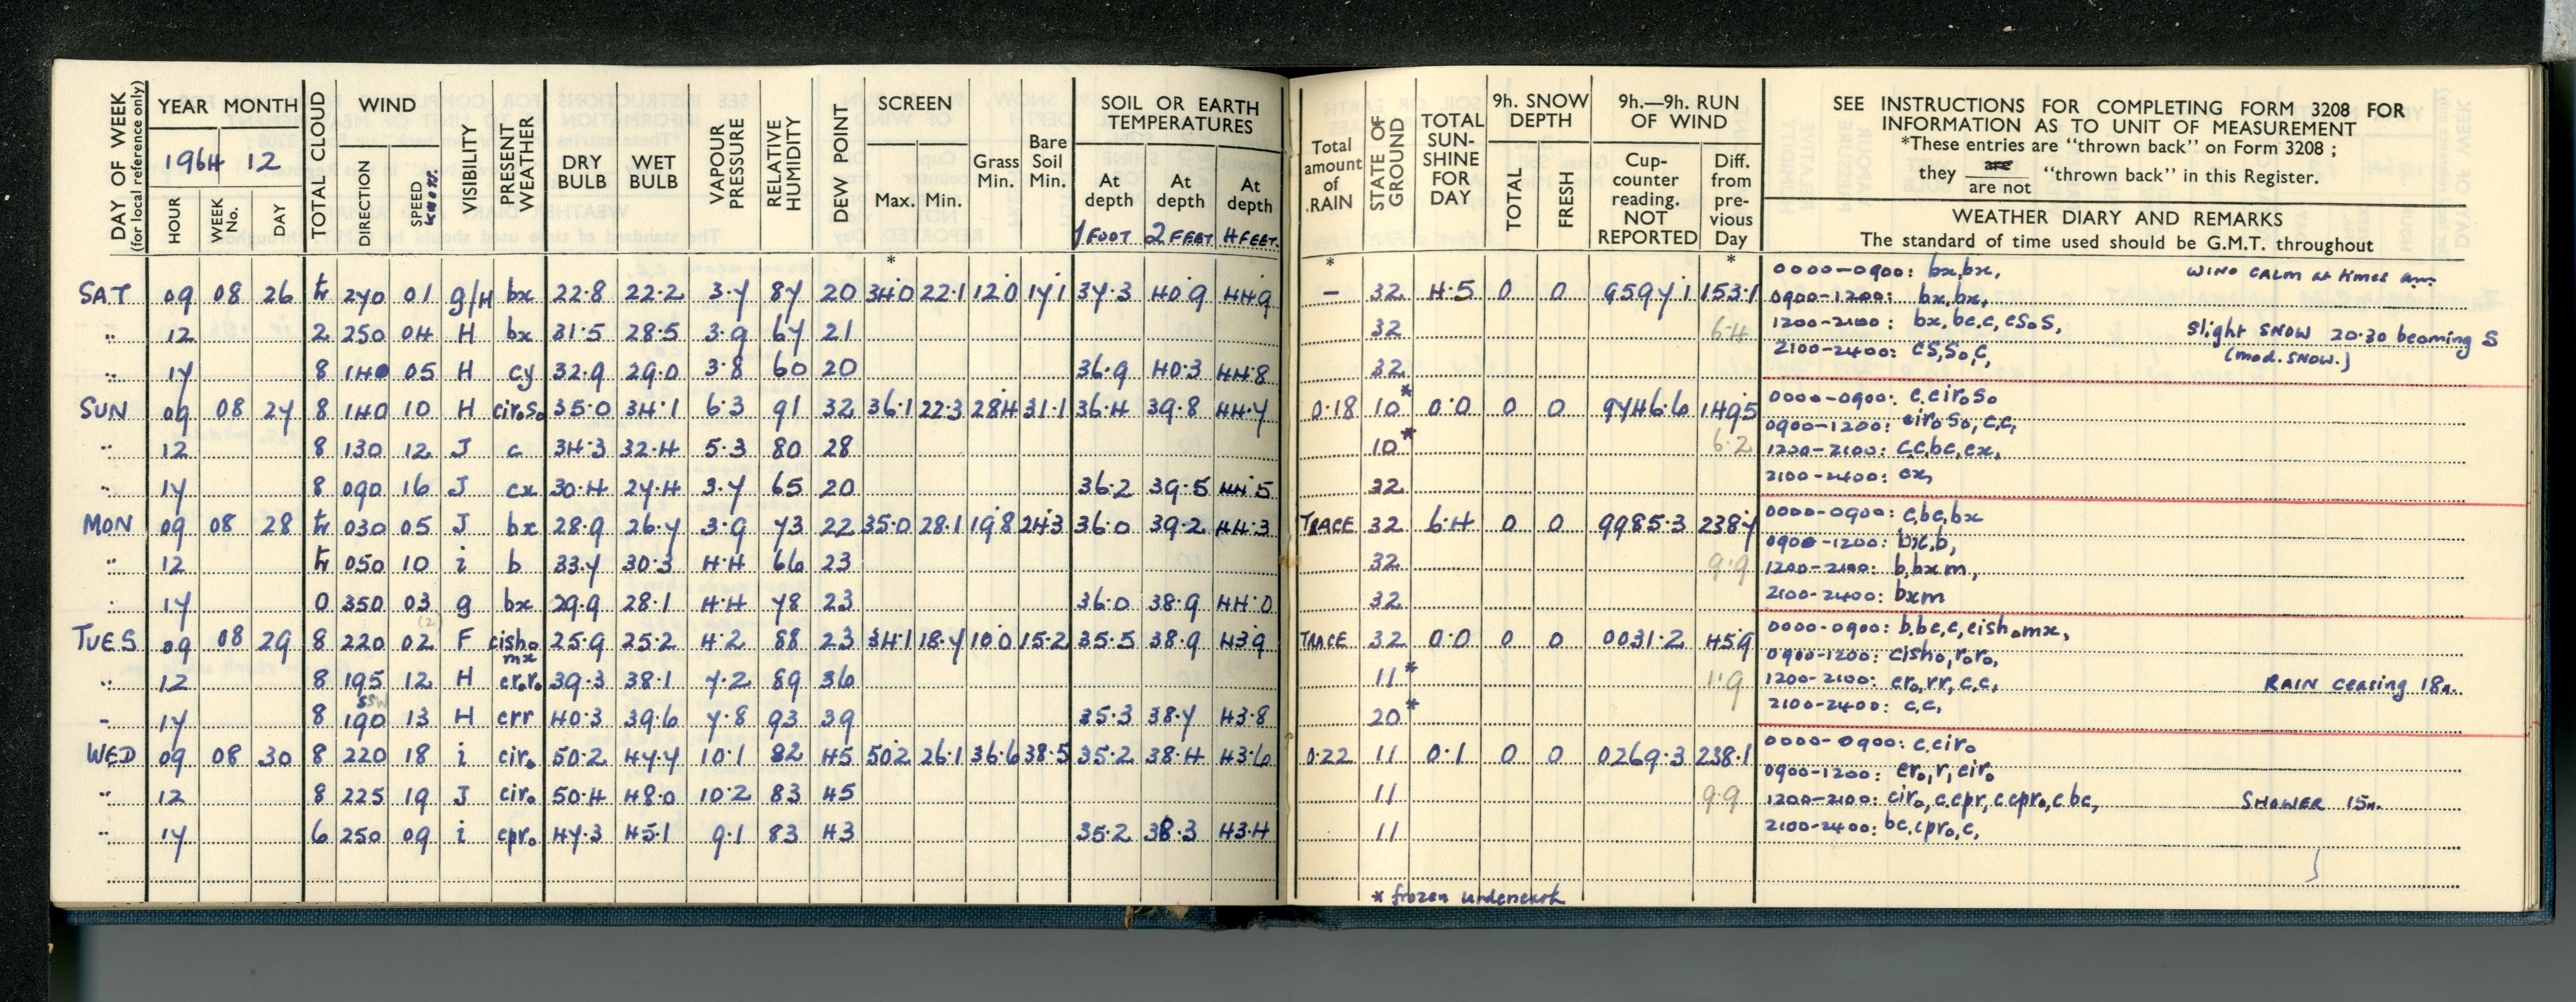 DAY OF WEEK (for local reference only) YEAR MONTH 1964 12 HOUR WEEK No. DAY
TOTAL CLOUD WIND DIRECTION SPEED KNOTS. VISIBILITY PRESENT WEATHER
DRY BULB WET BULB VAPOUR PRESSURE RELATIVE HUMIDITY DEW POINT
SCREEN Max. Min. Grass Min. Bare Soil Min.
SOIL OR EARTH TEMPERATURES
At depth 1 FOOT At depth 2 FEET At depth 4 FEET.
Total amount of RAIN STATE OF GROUND TOTAL SUN-SHINE FOR DAY
9h. SNOW DEPTH TOTAL FRESH
9h.—9h. RUN OF WIND
Cup-counter reading. NOT REPORTED Diff. from pre-vious Day
SEE INSTRUCTIONS FOR COMPLETING FORM 3208 FOR
INFORMATION AS TO UNIT OF MEASUREMENT
*These entries are "thrown back" on Form 3208 ;
they are / are not "thrown back" in this Register.
WEATHER DIARY AND REMARKS
The standard of time used should be G.M.T. throughout
* * *
SAT 09 08 26 tr 270 01 g/H bx 22.8 22.2 3.7 87 20 34.0 22.1 12.0 17.1 37.3 40.9 44.9 – 32 4.5 0 0 9597.1 153.1
0000-0900: bx,bx, WIND CALM at times am.
0900-1200: bx,bx,
" 12 2 250 04 H bx 31.5 28.5 3.9 67 21 32 6.4
1200-2100: bx,bc,c,cS₀S, Slight SNOW 20.30 becoming S
" 17 8 140 05 H cy 32.9 29.0 3.8 60 20 36.9 40.3 44.8 32
2100-2400: cS,S₀,C, (mod. SNOW.)
SUN 09 08 27 8 140 10 H cir₀s₀ 35.0 34.1 6.3 91 32 36.1 22.3 28.4 31.1 36.4 39.8 44.7 0.18 10* 0.0 0 0 9746.6 149.5
0000-0900: c,cir₀s₀
0900-1200: cir₀s₀,c,c,
" 12 8 130 12 J c 34.3 32.4 5.3 80 28 10* 6.2
1200-2100: c,c,bc,cx,
" 17 8 090 16 J cx 30.4 27.4 3.7 65 20 36.2 39.5 44.5 32
2100-2400: cx,
MON 09 08 28 tr 030 05 J bx 28.9 26.7 3.9 73 22 35.0 28.1 19.8 24.3 36.0 39.2 44.3 TRACE 32 6.4 0 0 9985.3 238.7
0000-0900: c,bc,bx
0900-1200: bx,b,
" 12 tr 050 10 i b 33.7 30.3 4.4 66 23 32 9.9
1200-2100: b,bxm,
" 17 0 350 03 g bx 29.9 28.1 4.4 78 23 36.0 38.9 44.0 32
2100-2400: bxm
(2)
TUES 09 08 29 8 220 02 F cish₀mx 25.9 25.2 4.2 88 23 34.1 18.7 10.0 15.2 35.5 38.9 43.9 TRACE 32 0.0 0 0 0031.2 45.9
0000-0900: b,bc,c,cish₀mx,
0900-1200: cish₀,r₀r₀,
" 12 8 195 12 H cr₀r₀ 39.3 38.1 7.2 89 36 11* 1.9
1200-2100: cr₀,rr,c,c, RAIN ceasing 18h.
SSW
" 17 8 190 13 H crr 40.3 39.6 7.8 93 39 35.3 38.7 43.8 20*
2100-2400: c,c,
WED 09 08 30 8 220 18 i cir₀ 50.2 47.7 10.1 82 45 50.2 26.1 36.6 38.5 35.2 38.4 43.6 0.22 11 0.1 0 0 0269.3 238.1
0000-0900: c,cir₀
0900-1200: cr₀,r,cir₀
" 12 8 225 19 J cir₀ 50.4 48.0 10.2 83 45 11 9.9
1200-2100: cir₀,c,cpr,c,cpr₀,c,bc, SHOWER 15h.
" 17 6 250 09 i cpr₀ 47.3 45.1 9.1 83 43 35.2 38.3 43.4 11
2100-2400: bc,cpr₀,c,
* frozen underneath